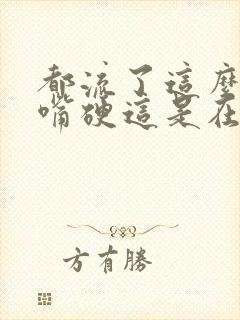 都流了這麼
嘴硬這是在
方有勝